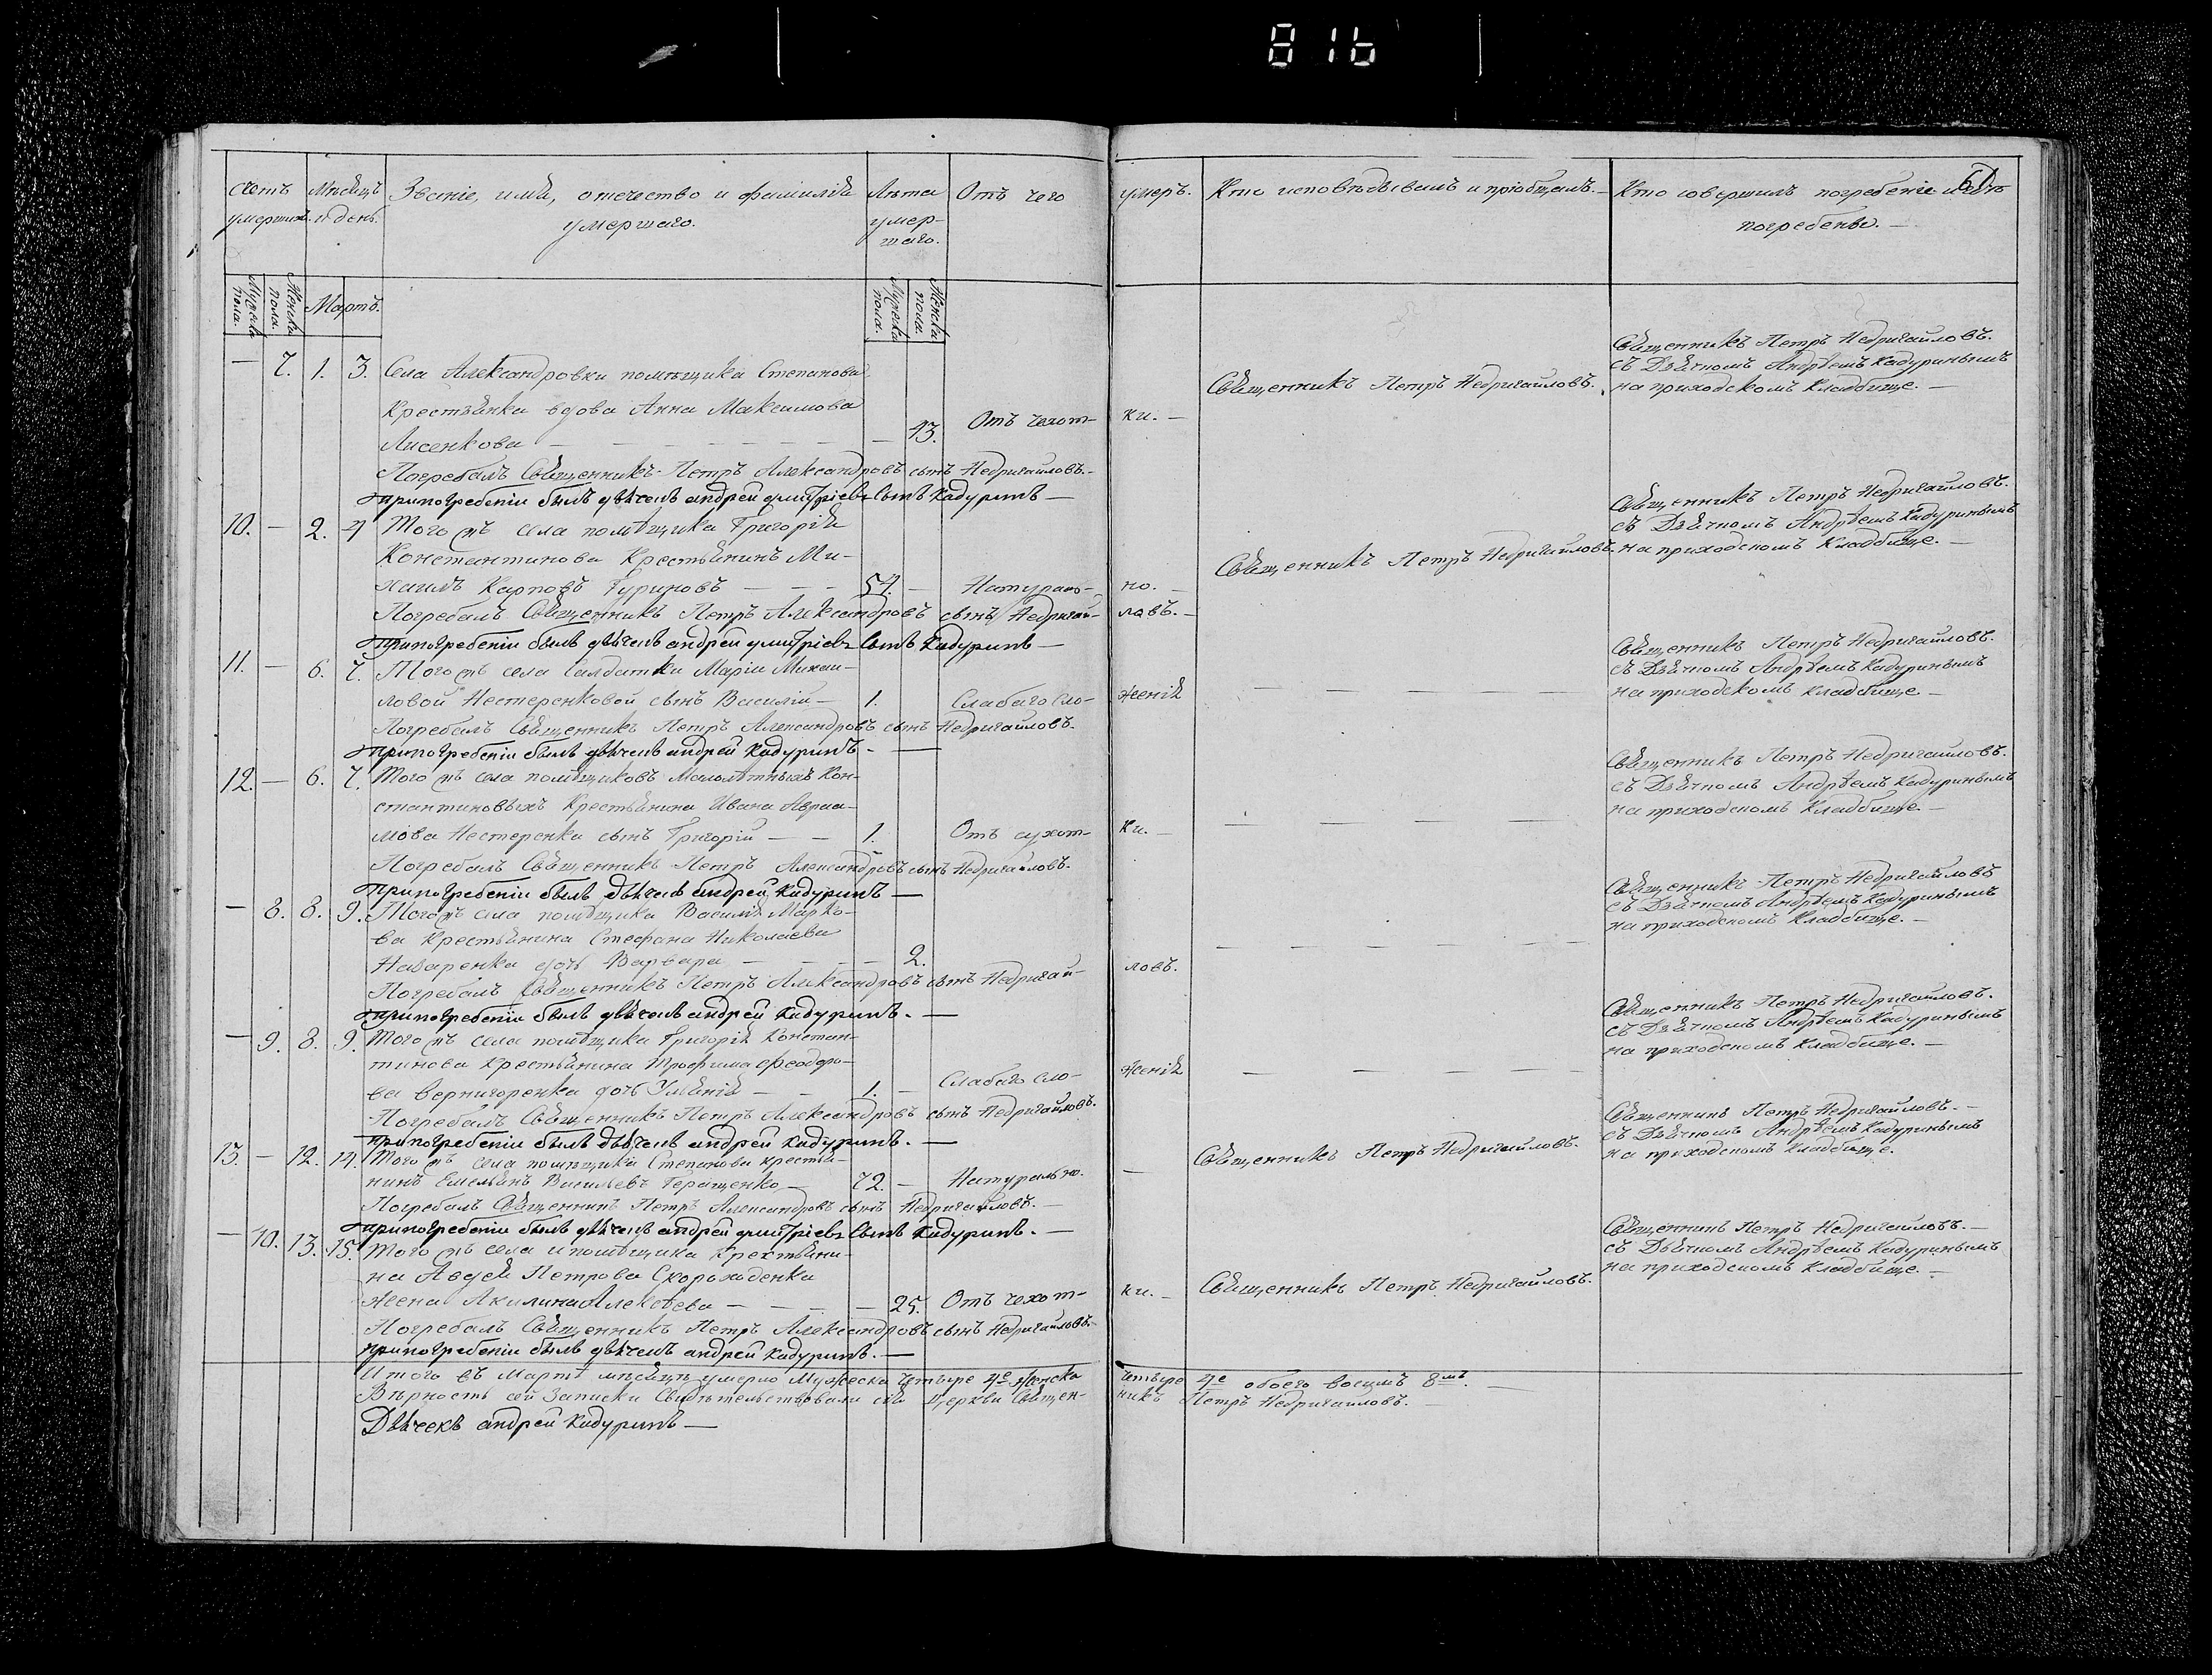 816
61
Счетъ умершихъ.
Мѣсяцъ и день.
Званіе, имя, отечество и фамилія умершаго.
Лѣта умер-
шаго.
Отъ чего
умеръ.
Кто исповѣдывалъ и пріобщалъ. —
Кто совершилъ погребеніе и гдѣ
погребены. —
Мужеска пола.
Женска пола.
Мартъ.
Мужеска пола.
Женска пола.
— 7. 1. 3. Села Александровки помѣщика Степанова
Крестьянка вдова Анна Максимова
Лисенкова — — 43. Отъ чехот- ки. —
Священникъ Петръ Недригайловъ.
Священникъ Петръ Недригайловъ.
съ Дьячкомъ Андрѣемъ Кадуринымъ
на приходскомъ Кладбище. —
Погребалъ Священникъ Петръ Александровъ сынъ Недригайловъ. —
при погребеніи былъ дьячекъ андрей дмитріевъ сынъ Кадуринъ —
10. — 2. 4 Того жъ села помѣщика Григорія
Константинова Крестьянинъ Ми-
хаилъ Карповъ Гуриновъ — 54. — Натураль- но. —
Священникъ Петръ Недригайловъ.
Священникъ Петръ Недригайловъ.
съ Дьячкомъ Андрѣемъ Кадуринымъ
на приходскомъ Кладбище. —
Погребалъ Священникъ Петръ Александровъ сынъ Недригай- ловъ. —
при погребеніи былъ дьячекъ андрей дмитріевъ сынъ Кадуринъ —
11. — 6. 7. Того жъ села Салдатки Маріи Михаи-
ловой Нестеренковой сынъ Василій — 1. Слабаго сло- женія
Священникъ Петръ Недригайловъ.
съ Дьячкомъ Андрѣемъ Кадуринымъ
на приходскомъ Кладбище. —
Погребалъ Священникъ Петръ Александровъ сынъ Недригайловъ.
при погребеніи былъ дьячекъ андрей Кадуринъ. —
12. — 6. 7. Того жъ села помѣщиковъ Малолѣтныхъ Кон-
стантиновыхъ Крестьянина Ивана Авраа-
мова Нестеренка сынъ Григорій — 1. Отъ сухот- ки. —
Священникъ Петръ Недригайловъ.
съ Дьячкомъ Андрѣемъ Кадуринымъ
на приходскомъ Кладбище. —
Погребалъ Священникъ Петръ Александровъ сынъ Недригайловъ.
при погребеніи былъ дьячекъ андрей Кадуринъ —
— 8. 8. 9. Того жъ села помѣщика Василія Марко-
ва Крестьянина Стефана Николаева
Назаренка дочь Варвара — 2.
Священникъ Петръ Недригайловъ
съ Дьячкомъ Андрѣемъ Кадуринымъ
на приходскомъ Кладбище. —
Погребалъ Священникъ Петръ Александровъ сынъ Недригай- ловъ.
при погребеніи былъ дьячекъ андрей Кадуринъ. —
— 9. 8. 9. Того жъ села помѣщика Григорія Констан-
тинова Крестьянина Трофима Феодоро-
ва Вернигоренка дочь Ульянія — 1. — Слабаго сло- женія
Священникъ Петръ Недригайловъ.
съ Дьячкомъ Андрѣемъ Кадуринымъ
на приходскомъ Кладбище. —
Погребалъ Священникъ Петръ Александровъ сынъ Недригайловъ.
при погребеніи былъ дьячекъ андрей Кадуринъ. —
13. — 12. 14. Того жъ села помѣщика Степанова крестья-
нинъ Емельянъ Васильевъ Геращенко — 72. — Натурально. —
Священникъ Петръ Недригайловъ.
Священникъ Петръ Недригайловъ. —
съ Дьячкомъ Андрѣемъ Кадуринымъ
на приходскомъ Кладбище.
Погребалъ Священникъ Петръ Александровъ сынъ Недригайловъ. —
при погребеніи былъ дьячекъ андрей дмитріевъ сынъ Кадуринъ. —
— 10. 13. 15. Того жъ села и помѣщика Крестьяни-
на Авдея Петрова Скороходенка
жена Акилина Алексѣева — — 25. Отъ чехот- ки. —
Священникъ Петръ Недригайловъ.
Священникъ Петръ Недригайловъ. —
съ Дьячкомъ Андрѣемъ Кадуринымъ
на приходскомъ Кладбище. —
Погребалъ Священникъ Петръ Александровъ сынъ Недригайловъ. —
при погребеніи былъ дьячекъ андрей Кадуринъ. —
Итого въ Мартѣ мѣсяцѣ умерло Мужеска четыре 4е Женска четыре 4е обоего восимъ 8мъ.
Вѣрность сей Записки Свидѣтельствовали сей Церкви Священ- никъ Петръ Недригайловъ. —
Дьячекъ андрей Кадуринъ —